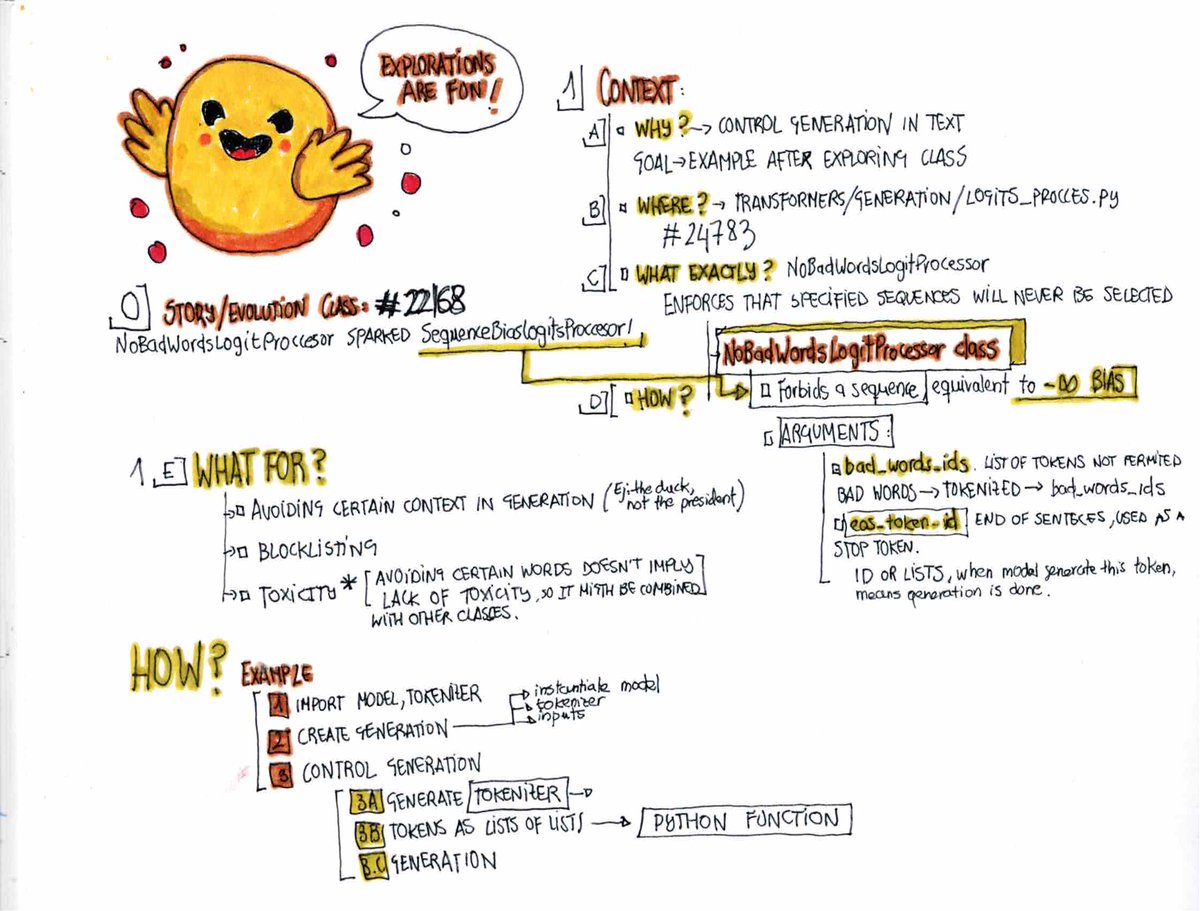 EXPLORATIONS
ARE FUN!
0 STORY/EVOLUTION CLASS: #22/68
NoBadWordsLogitProccesor SPARKED SequenceBiasLogitsProccesor!
1 CONTEXT:
A WHY? → CONTROL GENERATION IN TEXT
GOAL → EXAMPLE AFTER EXPLORING CLASS
B WHERE? → TRANSFORMERS/GENERATION/LOGITS_PROCCES.PY
#24783
C WHAT EXACTLY? NoBadWordsLogitProcessor
ENFORCES THAT SPECIFIED SEQUENCES WILL NEVER BE SELECTED
NoBadWordsLogitProcessor class
D HOW? Forbids a sequence equivalent to -∞ BIAS
ARGUMENTS:
bad_words_ids. LIST OF TOKENS NOT PERMITED
BAD WORDS → TOKENIZED → bad_words_ids
eos_token_id END OF SENTECES, USED AS A
STOP TOKEN.
ID OR LISTS, when model generate this token,
means generation is done.
1 E WHAT FOR?
AVOIDING CERTAIN CONTEXT IN GENERATION (Ej: the duck,
not the president)
BLOCKLISTING
TOXICITY * [AVOIDING CERTAIN WORDS DOESN'T IMPLY
LACK OF TOXICITY, SO IT MIGTH BE COMBINED]
WITH OTHER CLASSES.
HOW? EXAMPLE
1 IMPORT MODEL, TOKENIZER
2 CREATE GENERATION
instantiate model
tokenizer
inputs
3 CONTROL GENERATION
3A GENERATE TOKENIZER →
3B TOKENS AS LISTS OF LISTS → PYTHON FUNCTION
3.C GENERATION